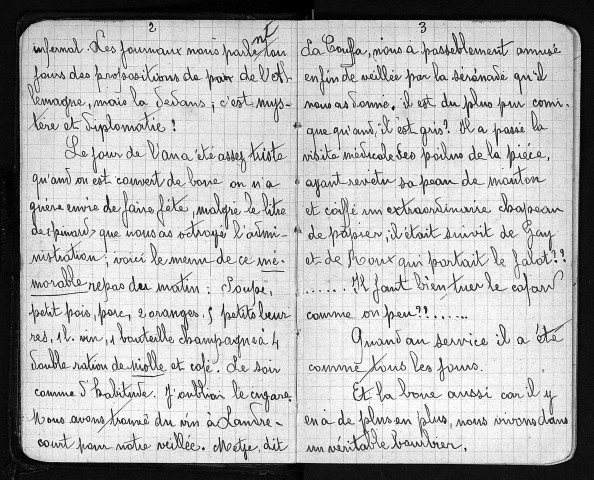 2
infernal. Les journaux nous parlent tou
jours des propositions de paix de l'Al-
lemagne, mais la dedans ; c'est mys-
tère et diplomatie !
Le jour de l'an a été assez triste
quand on est couvert de boue on n'a
guère envie de faire fête, malgré le litre
de "pinard" que nous as octroyé l'admi-
nistration ; voici le menu de ce mé-
morable repas du matin : Soupe,
petit pois, porc, 2 oranges, 5 petits beur-
res, 1 l. vin, 1 bouteille champagne à 4
double ration de niolle et café. Le soir
comme d'habitude. J'oubliai le cigare.
Nous avons trouvé du vin à Landre-
court pour notre veillée. Metje, dit
3
La Couffa, nous à passeblement amusé
en fin de veillée par la sérénade qu'il
nous as donné. il est du plus pur comi-
que quand, il est gris ? Il a passé la
visite médicale des poilus de la pièce,
ayant revêtu sa peau de mouton
et coiffé un extraordinaire chapeau
de papier, il était suivit de Gay
et de Roux qui portait le falot ??
....... Il faut bien tuer le cafard
comme on peu ??.......
Quand au service il a été
comme tous les jours.
Et la boue aussi car il y
en à de plus en plus, nous vivons dans
un véritable bourbier.